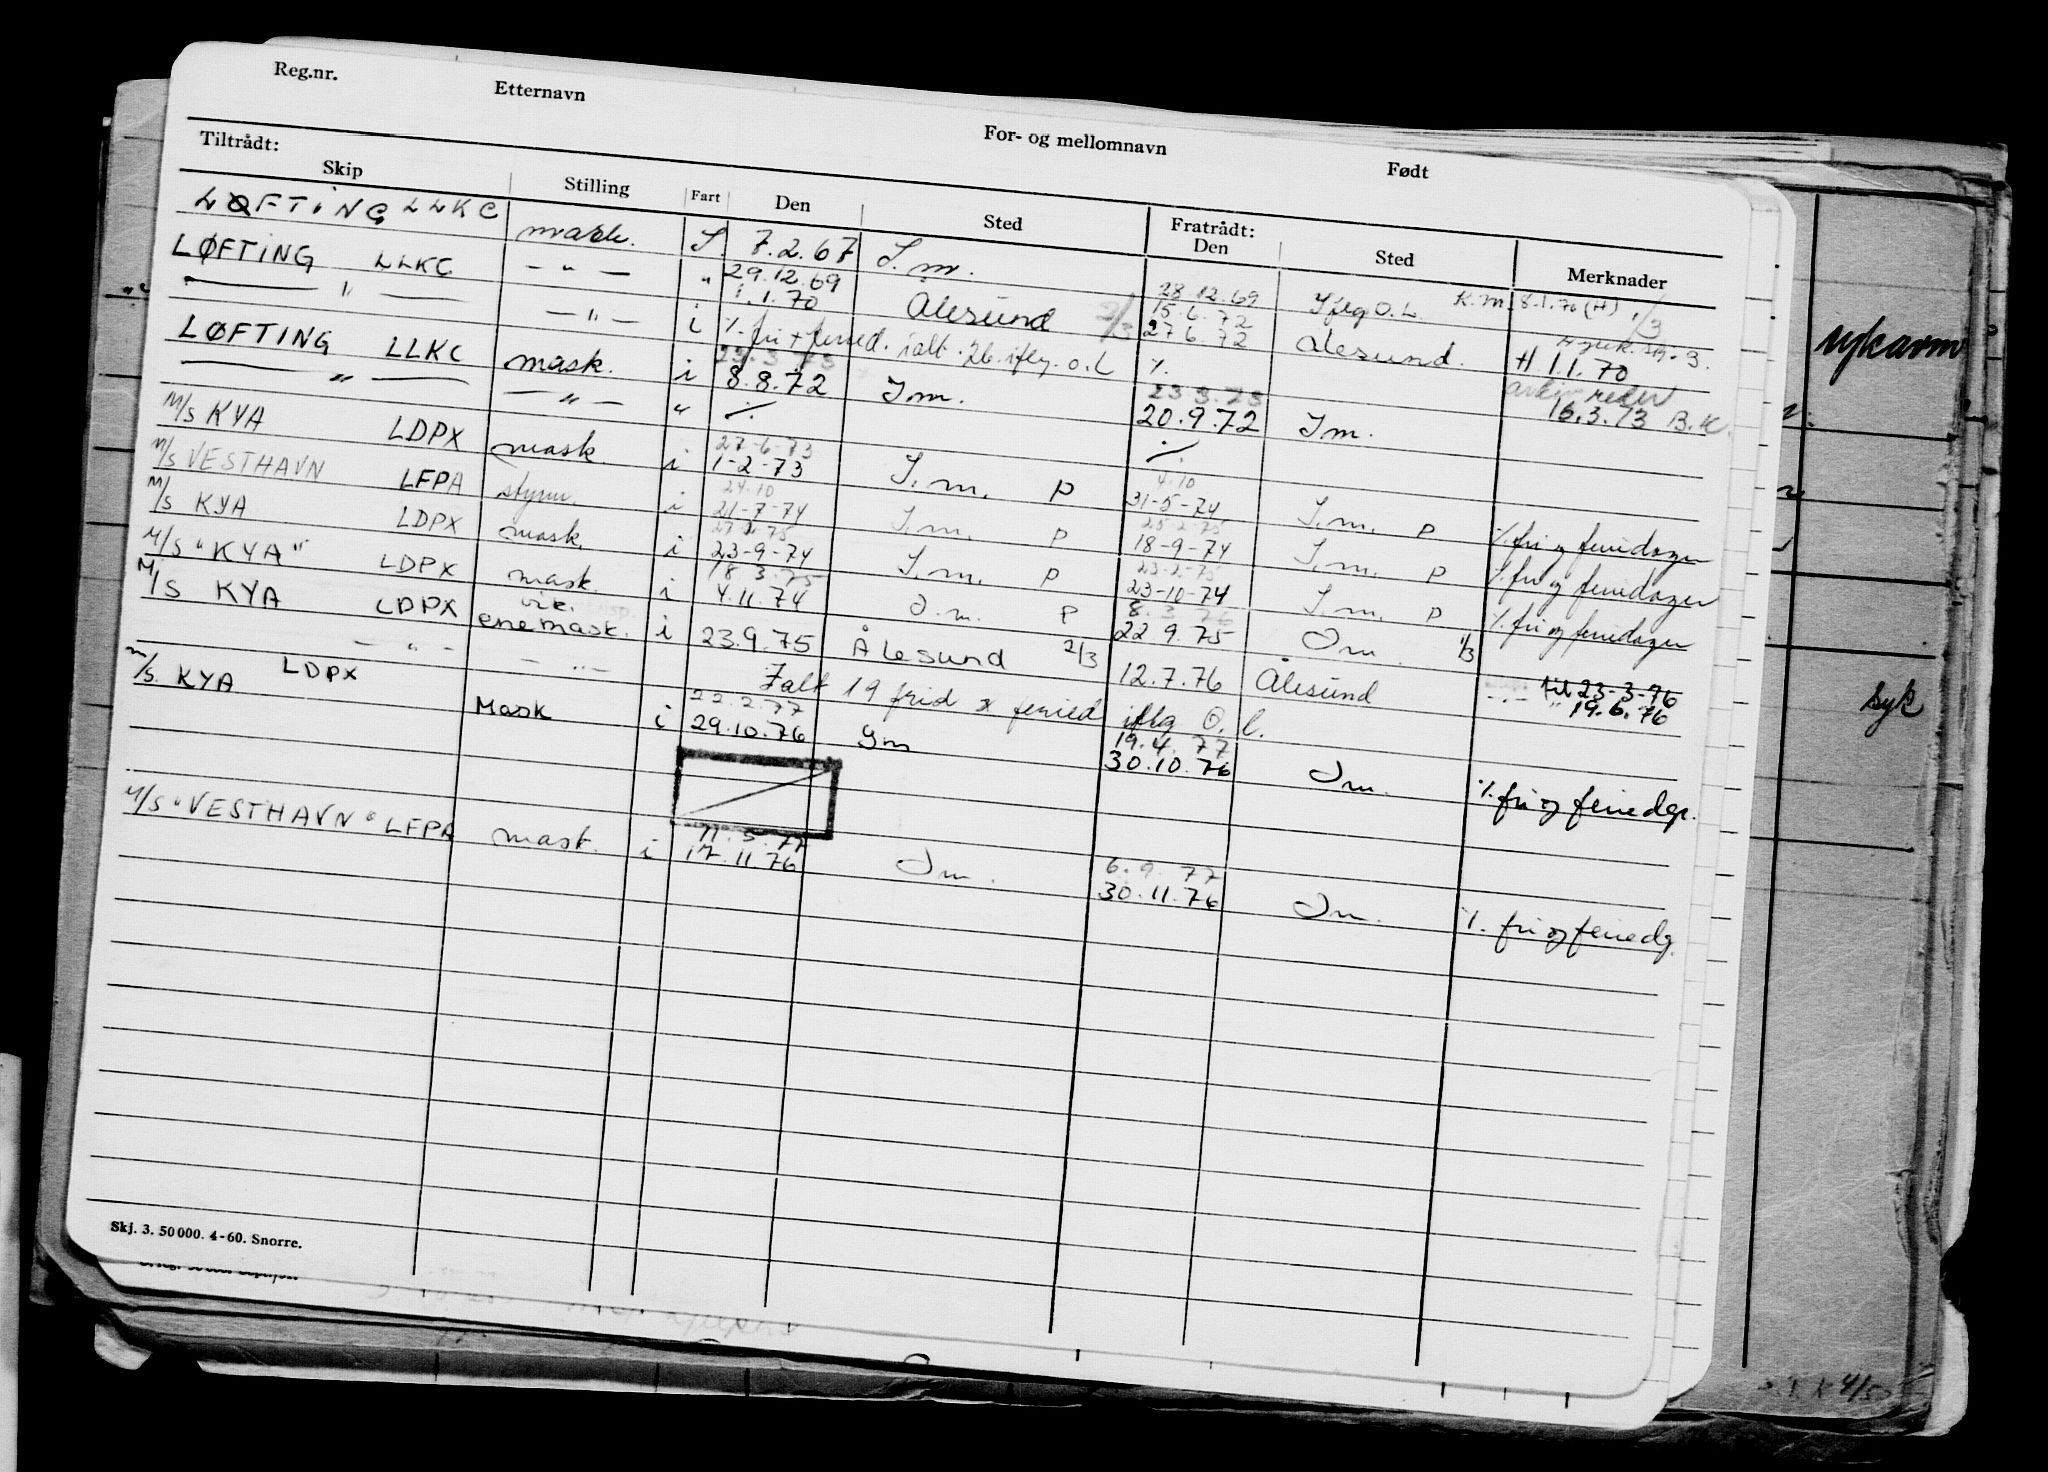 Reg.nr. Etternavn For- og mellomnavn Født
Tiltrådt: Fratrådt:
Skip Stilling Fart Den Sted Den Sted Merknader
LØFTING LLKC mask. S 7.2.67 S.m. 28.12.69 Iflg O.L. K.m. 8.1.70 (H) 1/3
LØFTING LLKC — " — " 29.12.69
— " — — " — i 1.1.70 Ålesund 2/3 15.6.72 27.6.72 Ålesund. H 1.1.70
%. fri + feried. ialt. 26. iflg. O.L %.
LØFTING LLKC mask. i 23.3.73 8.8.72 I.m. 23.3.73 20.9.72 I m. 16.3.73 B.K.
— " — — " — " %. %.
M/S KYA LDPX mask i 27-6-73 1-2-73 I.m. P 4.10 31-5-74 I.m. P %. fri og feriedager
M/S VESTHAVN LFPA styrm. i 24.10 21-7-74 I.m. P 25-2-75 18-9-74 I.m. P %. fri og feriedager
M/S KYA LDPX mask. i 27.2.75 23-9-74 I.m. P 23-2-75 23-10-74 I.m. P %. fri og feriedager
M/S "KYA" LDPX mask. i 18.3.75 4.11.74 I.m. P 8.3.76 22.9.75 I m. 1/3
M/S KYA LDPX vik. enemask. i 23.9.75 Ålesund 2/3 12.7.76 Ålesund til 23-3-76
- " - - " - Ialt 19 frid & feried iflg O.L. - " - " 19.6.76
M/S. KYA LDPX Mask i 22.2.77 29.10.76 Im 19.4.77 30.10.76 Im. %. fri og feriedgr.
M/S "VESTHAVN" LFPA mask. i 11.5.77 17.11.76 Im. 6.9.77 30.11.76 Im. %. fri og feriedg.
syk
Skj. 3. 50 000. 4-60. Snorre.